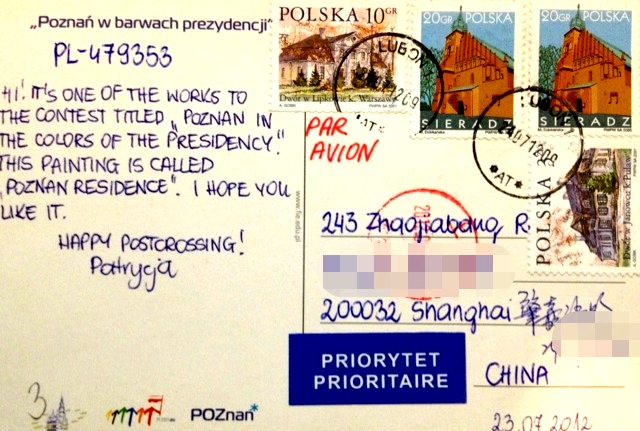 „Poznań w barwach prezydencji”
PL-479353
HI! IT'S ONE OF THE WORKS TO
THE CONTEST TITLED „POZNAN IN
THE COLORS OF THE PRESIDENCY."
THIS PAINTING IS CALLED
„POZNAN RESIDENCE". I HOPE YOU
LIKE IT.
HAPPY POSTCROSSING!
Patrycja
3
POZnan*
www.fie.edu.pl
POLSKA 10GR
Dwór w Lipkowie k. Warszawy
20GR POLSKA
SIERADZ
20GR POLSKA
SIERADZ
POLSKA
LUBOŃ
*AT*
*AT*
PAR
AVION
243 Zhaojiabang, R.
200032 Shanghai
PRIORYTET
PRIORITAIRE
CHINA
23.07.2012